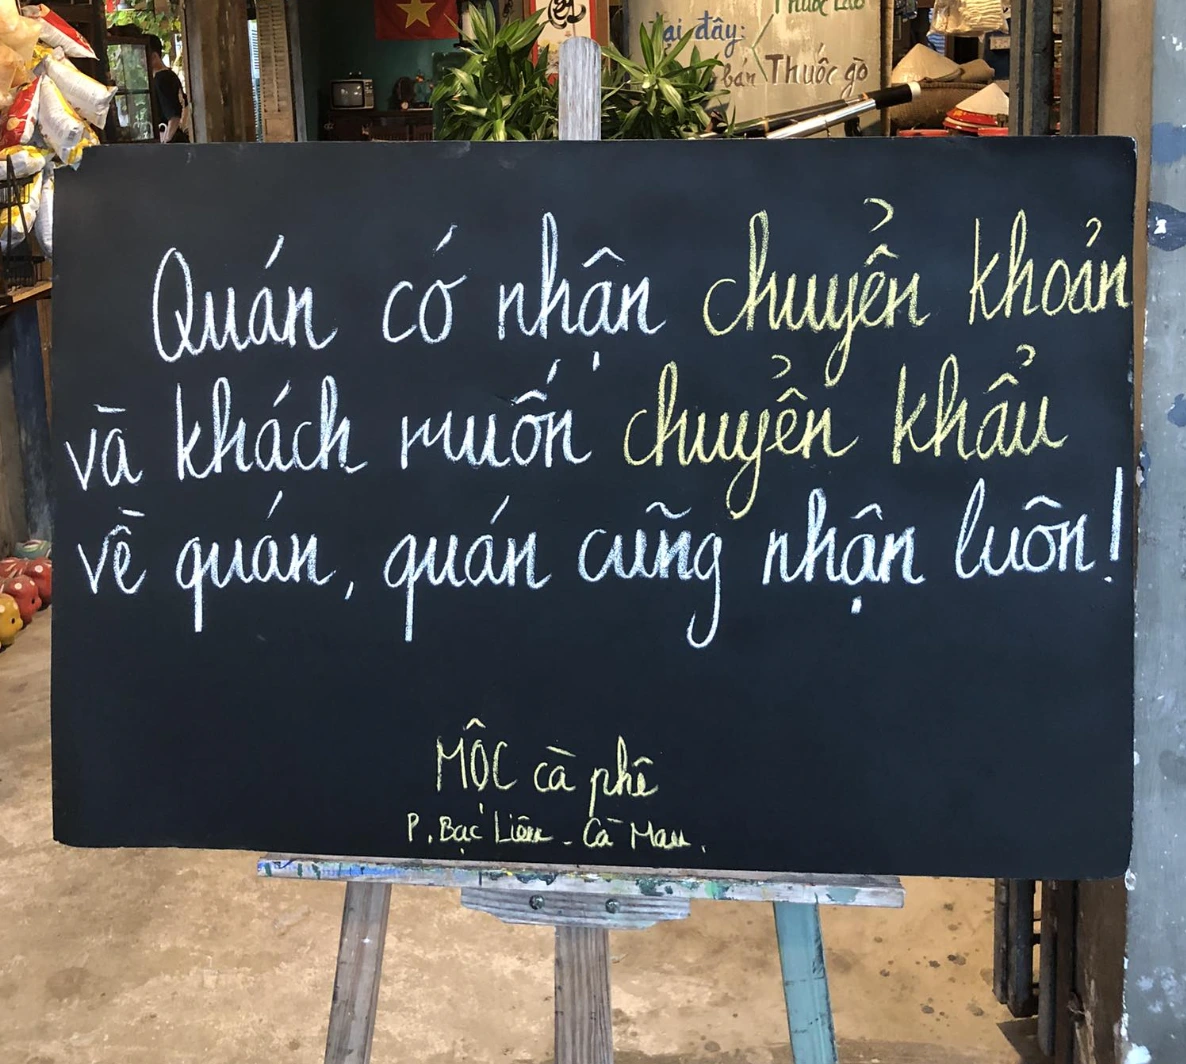 Tại đây:
Thuốc Lào
bán Thuốc gò
Quán có nhận chuyển khoản
và khách muốn chuyển khẩu
về quán, quán cũng nhận luôn!
MỘC cà phê
P. Bạc Liêu - Cà Mau.